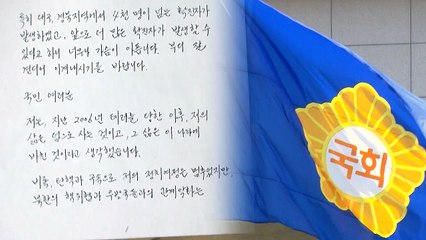 특히 대구, 경북지역에서 4천 명이 넘는 확진자가
발생하였고, 앞으로 더 많은 확진자가 발생할 수
있다고 하니 너무나 가슴이 아픕니다. 부디 잘
견디어 이겨내시기를 바랍니다.
국민 여러분
저는 지난 2006년 테러를 당한 이후, 저의
삶을 덤으로 사는 것이고, 그 삶은 이 나라에
바친 것이라고 생각했습니다.
비록, 탄핵과 구속으로 저의 정치여정은 멈추었지만,
북한의 핵위협과 우방국들과의 관계악화는
국회